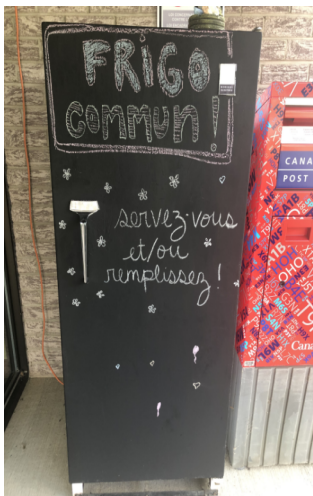 FRIGO
COMMUN!
servez-vous
et/ou
remplissez!
CANA
POST